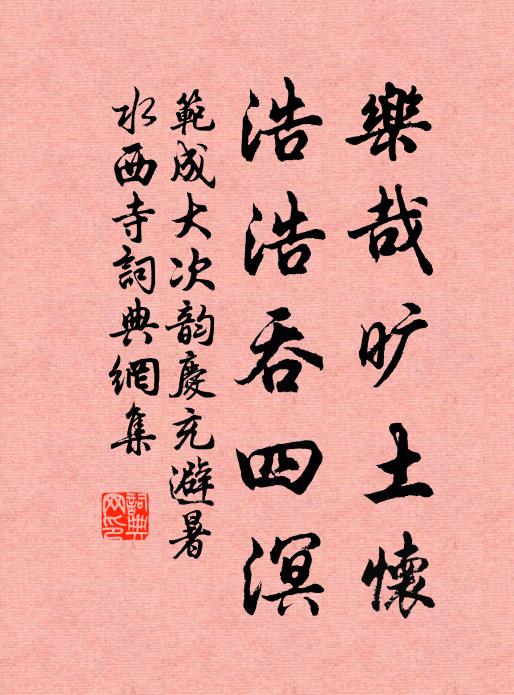 樂哉旷土懷
浩浩吞四溟
範成大次韵慶充避暑
水西寺詞典網集
詞典
网印